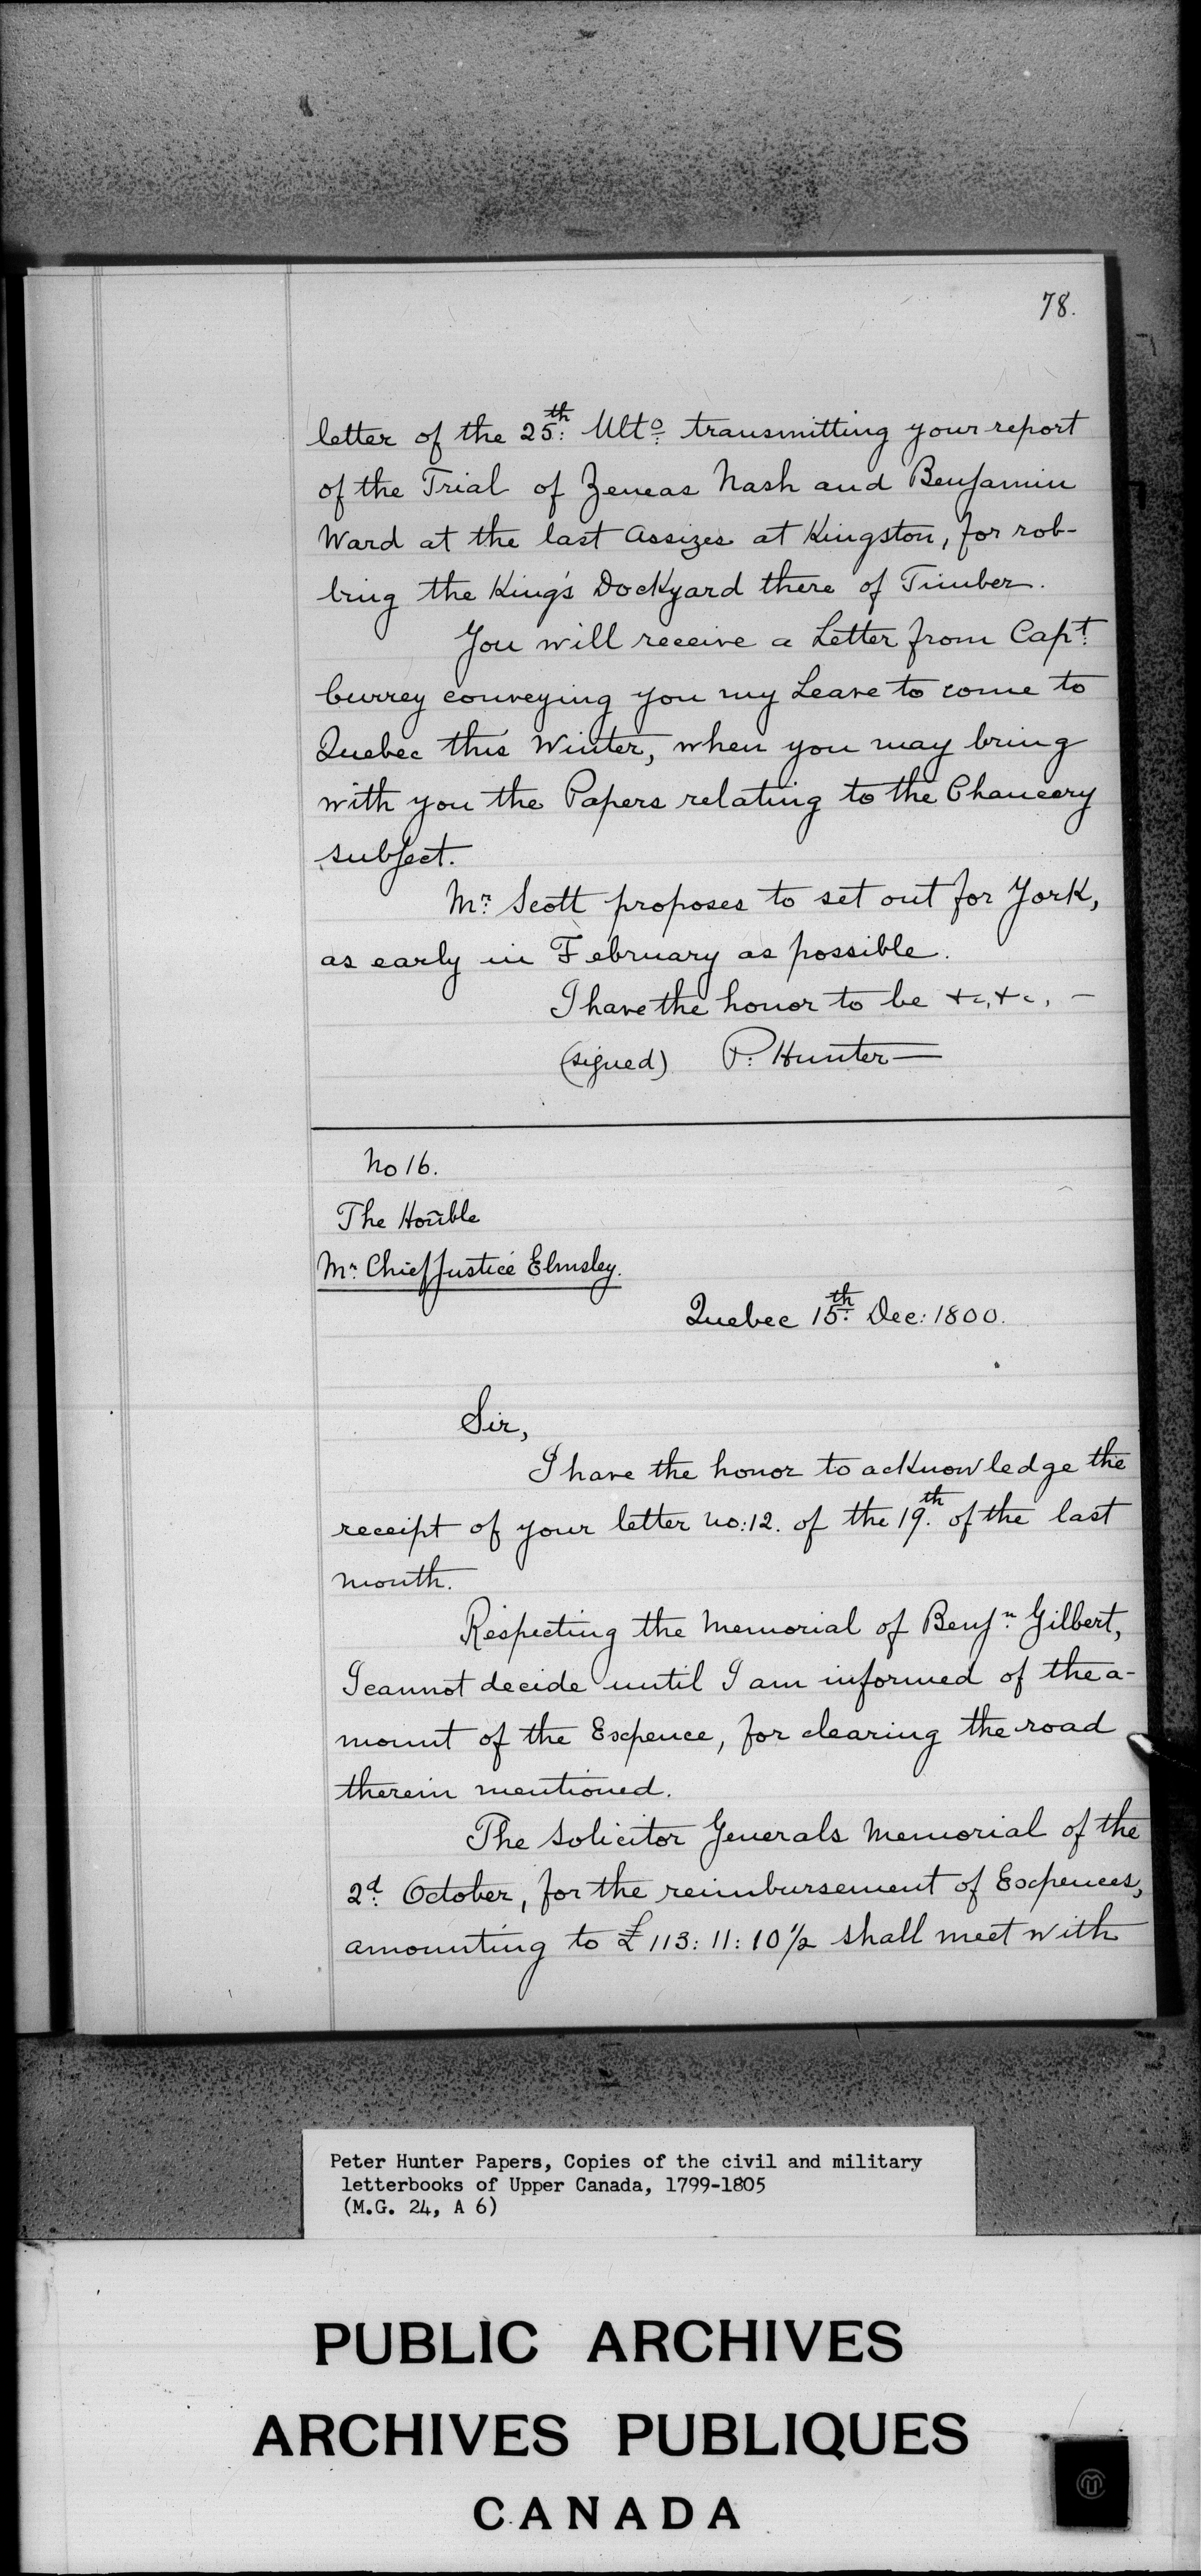 78.
letter of the 25th: Ulto: transmitting your report
of the Trial of Zeneas Nash and Benjamin
Ward at the last Assizes at Kingston, for rob-
bing the King's Dockyard there of Timber.
You will receive a Letter from Capt:
Currey conveying you my Leave to come to
Quebec this Winter, when you may bring
with you the Papers relating to the Chancery
subject.
Mr: Scott proposes to set out for York,
as early in February as possible.
I have the honor to be &c, &c, —
(signed) P: Hunter —
No 16.
The Honble
Mr. Chief Justice Elmsley.
Quebec 15th: Dec: 1800.
Sir,
I have the honor to acknowledge the
receipt of your letter no: 12. of the 19th. of the last
month.
Respecting the Memorial of Benjn: Gilbert,
I cannot decide until I am informed of the a-
mount of the Expence, for clearing the road
therein mentioned.
The Solicitor Generals Memorial of the
2d: October, for the reimbursement of Expences,
amounting to £113: 11: 10 1/2 shall meet with
Peter Hunter Papers, Copies of the civil and military
letterbooks of Upper Canada, 1799-1805
(M.G. 24, A 6)
PUBLIC ARCHIVES
ARCHIVES PUBLIQUES
CANADA